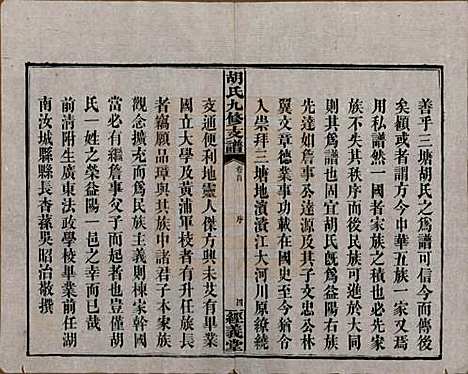 善乎三塘胡氏之爲譜可今而傳後
矣顧或者謂方今中華五族一家又焉
用私譜然一國者家族之積也必先有
不失其秩序而後民族可以團體三塘
之爲譜也固宜胡氏既爲益陽右族
先達如詹事公達源及其子文忠公林
翼文章德業事功載在國史至今猶令
人崇拜三塘地濱濱江大河川原繚繞
胡氏九修支譜
卷首
序
四
經義堂
交通便利地靈人傑方興未艾有畢業
國立大學及黄浦軍校者有升任族長
者竊願品璋與其族中諸君子本家族
觀念擴充而爲民族主義則棟家幹國
當必有繼詹事父子而起者也豈僅胡
氏一姓之榮益陽一邑之幸而已哉
前清附生廣東法政學校畢業前任湖
南汝城縣縣長杳蓀吳昭治敬撰